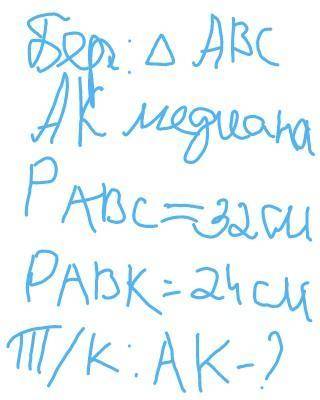 Бер: △ ABC
АК медиана
P ABC = 32 см
PABK = 24 см
Т/К: AK - ?